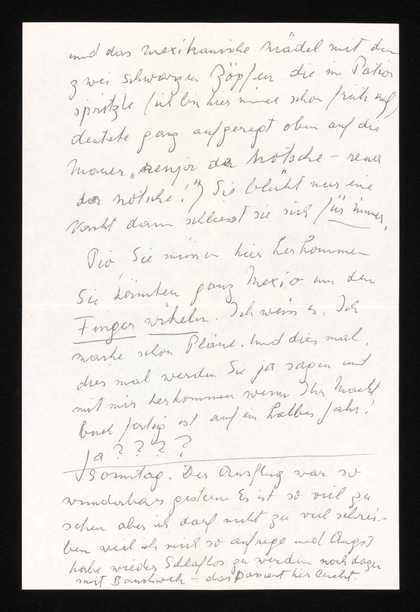 und das mexikanische Mädel mit den
zwei schwarzen Zöpfen die im Patio
spritzte (ich bin hier immer schon früh auf)
deutete ganz aufgeregt oben auf die
Mauer "Senjor de Notsche – reina
de notsche!" Sie blüht nur eine
Nacht dann schliesst sie sich für immer.
Pio Sie müssen hier herkommen
Sie könnten ganz Mexico um den
Finger wickeln. Ich weiss es. Ich
mache schon Pläne. Und dies mal,
dies mal werden Sie ja sagen und
mit mir herkommen wenn Ihr
buch fertig ist auf ein halbes Jahr!
Ja????
Sonntag. Der Ausflug war so
wunderbar gestern. Es ist so viel zu
sehen aber ich darf nicht zu viel schrei-
ben weil ich mich so aufrege und Angst
habe wieder Schlaflos zu werden noch dazu
mit - das passiert hier leicht.